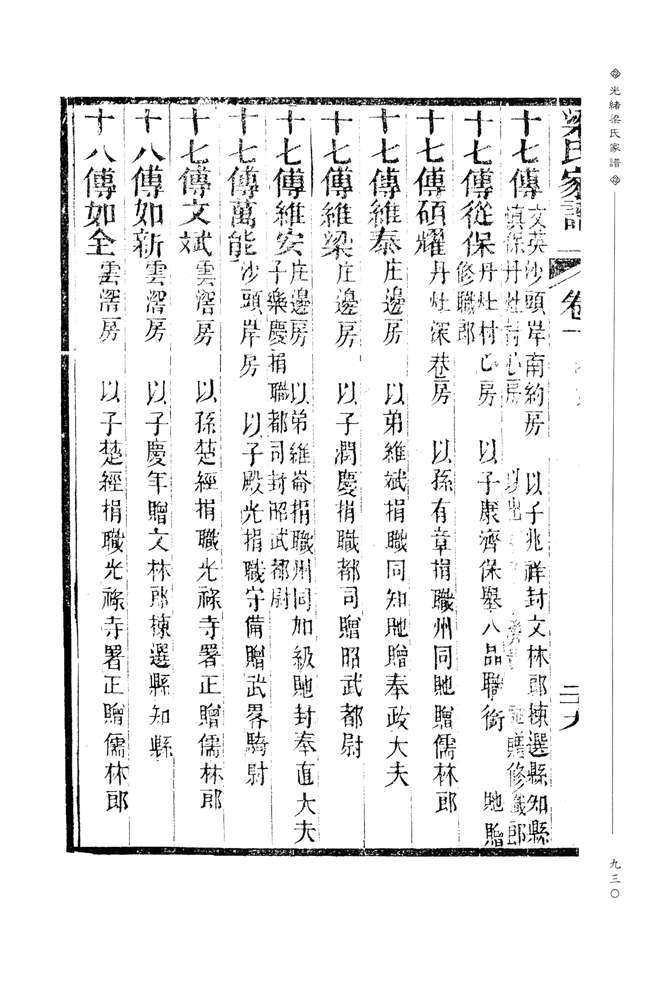 光緒梁氏家譜
九三〇
梁氏家譜 卷一
十七傳
文英沙頭岸南約房 以子兆祥封文林郎揀選縣知縣
慎保丹灶村心房 貤贈修職郎
十七傳從保丹灶村心房 以子康濟保舉八品職銜 貤贈
修職郎
十七傳碩耀丹灶深巷房 以孫有章捐職州同貤贈儒林郎
十七傳維泰庄邊房 以弟維斌捐職同知貤贈奉政大夫
十七傳維梁庄邊房 以子潤慶捐職都司贈昭武都尉
十七傳維安庄邊房 以弟維崙捐職州同加級貤封奉直大夫
子樂慶捐職都司封昭武都尉
十七傳萬能沙頭岸房 以子殿光捐職守備贈武畧騎尉
十七傳文斌雲滘房 以孫楚經捐職光祿寺署正贈儒林郎
十八傳如新雲滘房 以子慶年贈文林郎揀選縣知縣
十八傳如全雲滘房 以子楚經捐職光祿寺署正贈儒林郎